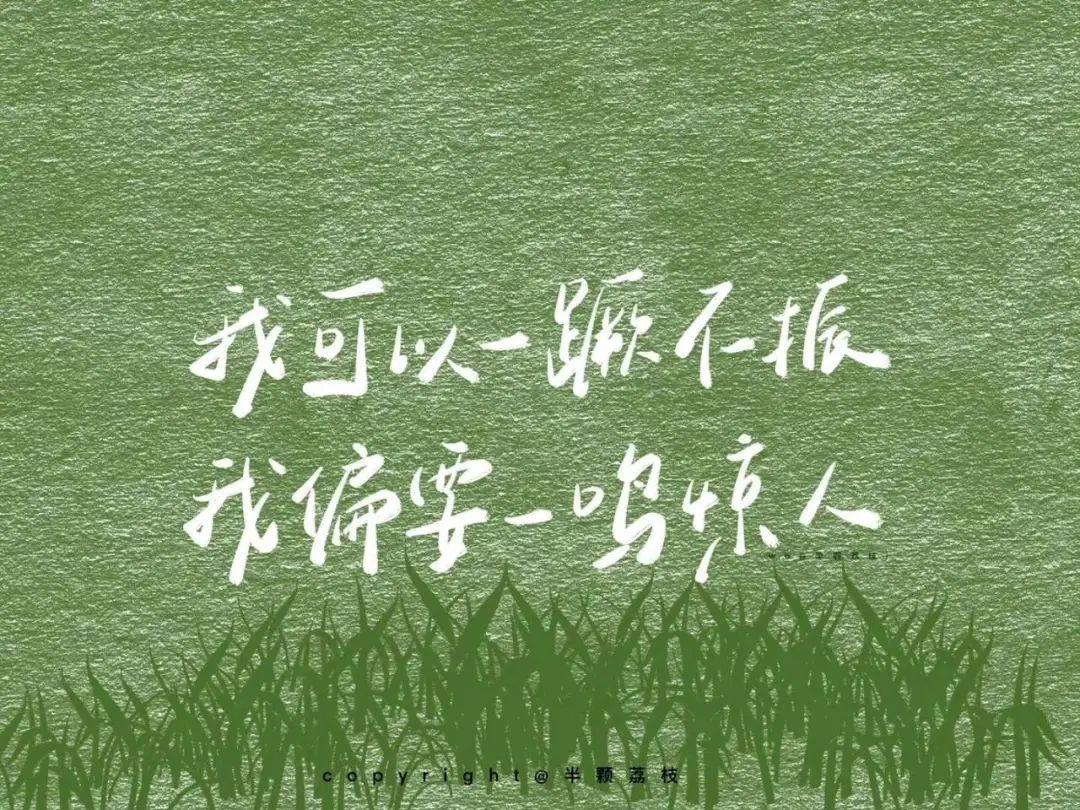 我可以一蹶不振
我偏要一鸣惊人
copyright@半颗荔枝